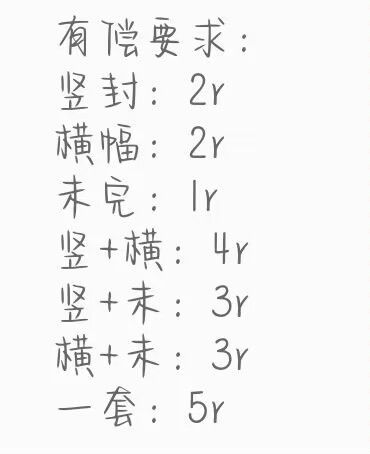 有偿要求:
竖封: 2r
横幅: 2r
未完: 1r
竖+横: 4r
竖+未: 3r
横+未: 3r
一套: 5r